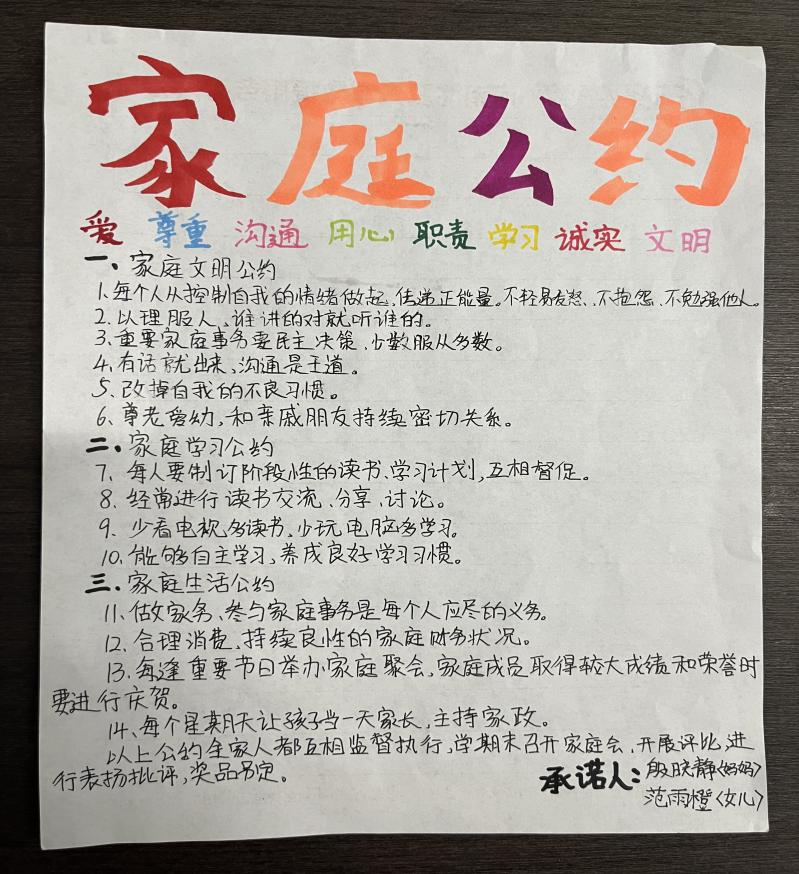 家庭公约
爱 尊重 沟通 用心 职责 学习 诚实 文明
一、家庭文明公约
1.每个人从控制自我的情绪做起,传递正能量。不轻易发怒、不抱怨、不勉强他人。
2.以理服人,谁讲的对就听谁的。
3.重要家庭事务要民主决策、少数服从多数。
4.有话就出来,沟通是王道。
5、改掉自我的不良习惯。
6、尊老爱幼,和亲戚朋友持续密切关系。
二、家庭学习公约
7、每人要制订阶段性的读书、学习计划,互相督促。
8、经常进行读书交流、分享、讨论。
9、少看电视多读书,少玩电脑多学习。
10、能够自主学习,养成良好学习习惯。
三、家庭生活公约
11、做家务、参与家庭事务是每个人应尽的义务。
12、合理消费,持续良性的家庭财务状况。
13、每逢重要节日举办家庭聚会,家庭成员取得较大成绩和荣誉时
要进行庆贺。
14、每个星期天让孩子当一天家长,主持家政。
以上公约全家人都互相监督执行,学期末召开家庭会,开展评比,进
行表扬批评,奖品另定。
承诺人:殷晓静(妈妈)
范雨橙(女儿)